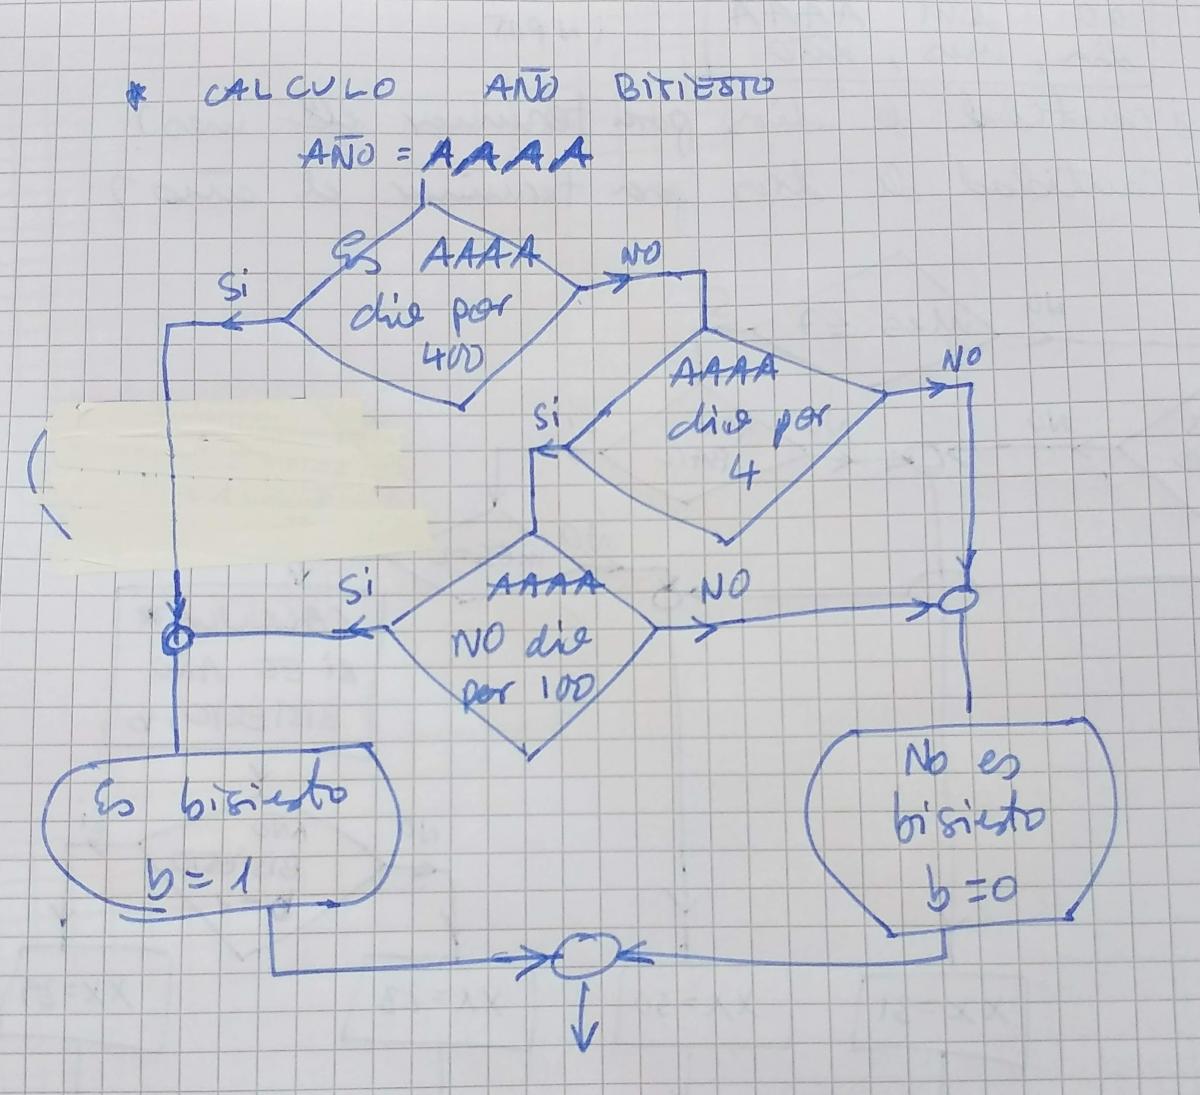 * CALCULO AÑO BITIESTO
AÑO = AAAA
Es AAAA
div por
400
Si
NO
AAAA
div por
4
Si
NO
AAAA
NO div
por 100
Si
NO
Es bisiesto
b = 1
No es
bisiesto
b = 0